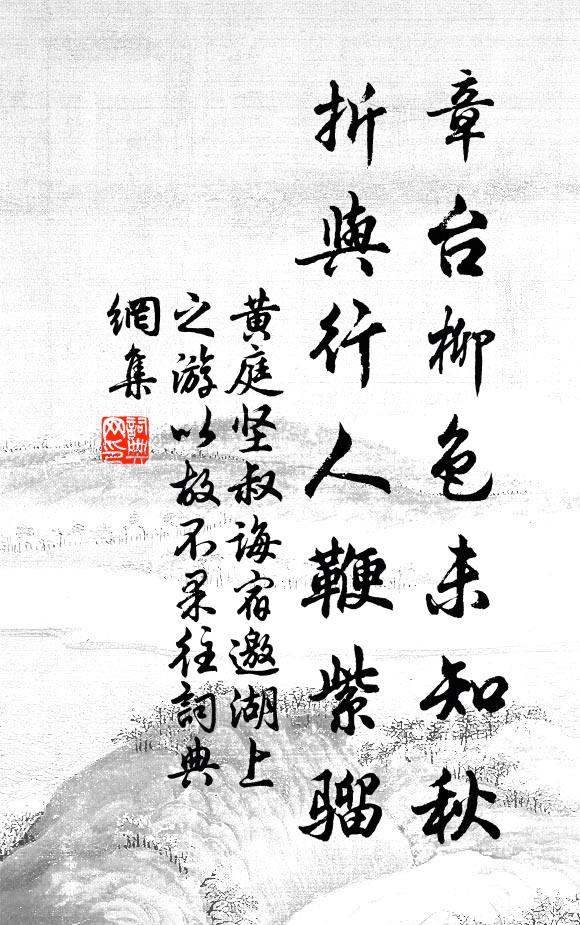 章台柳色未知秋
折與行人鞭紫骝
黄庭坚叔诲宿邀湖上
之游以故不果往詞典
網集
詞典
网印